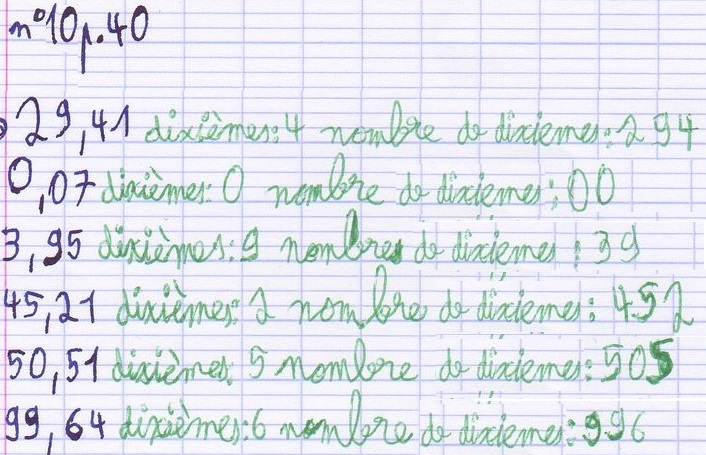 n°10 p.40
29,41 dixièmes: 4 nombre de dixiemes: 294
0,07 dixièmes: 0 nombre de dixiemes: 00
3,95 dixièmes: 9 nombres de dixiemes: 39
45,21 dixièmes: 2 nombre de dixiemes: 452
50,51 dixièmes: 5 nombre de dixiemes: 505
99,64 dixièmes: 6 nombre de dixiemes: 996